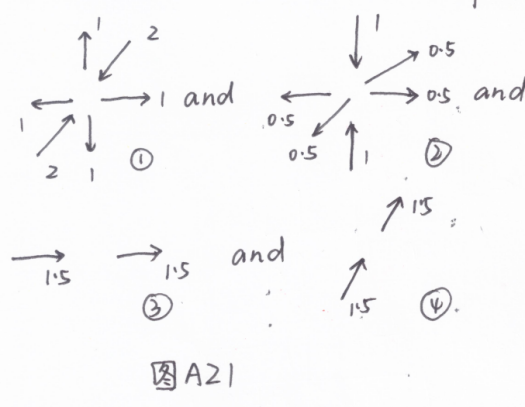 1 2 1 and
1 2 1 ①
1 0.5 0.5 and
0.5 0.5 1 ②
1.5 1.5 and
③
1.5 1.5 ④
图A21